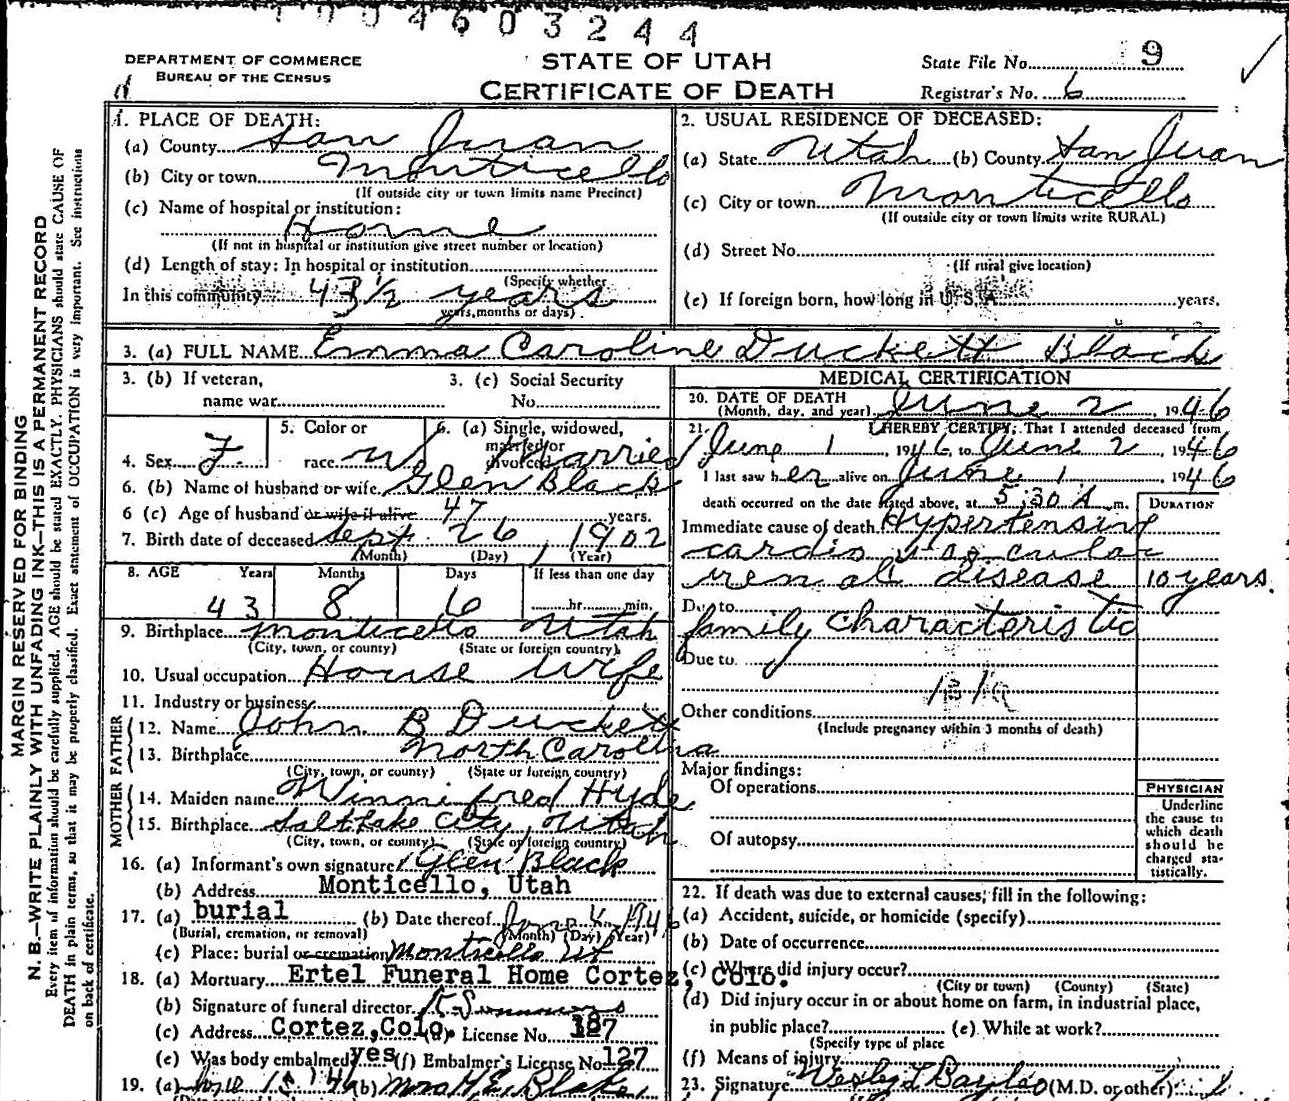 1004603244
DEPARTMENT OF COMMERCE
BUREAU OF THE CENSUS
STATE OF UTAH
CERTIFICATE OF DEATH
State File No. 9
Registrar's No. 6
MARGIN RESERVED FOR BINDING
N. B.—WRITE PLAINLY WITH UNFADING INK—THIS IS A PERMANENT RECORD
Every item of information should be carefully supplied. AGE should be stated EXACTLY. PHYSICIANS should state CAUSE OF
DEATH in plain terms, so that it may be properly classified. Exact statement of OCCUPATION is very important. See instructions
on back of certificate.
1. PLACE OF DEATH:
(a) County San Juan
(b) City or town Monticello
(If outside city or town limits name Precinct)
(c) Name of hospital or institution:
Home
(If not in hospital or institution give street number or location)
(d) Length of stay: In hospital or institution
(Specify whether
In this community 43 1/2 years
years, months or days)
2. USUAL RESIDENCE OF DECEASED:
(a) State Utah (b) County San Juan
(c) City or town Monticello
(If outside city or town limits write RURAL)
(d) Street No.
(If rural give location)
(e) If foreign born, how long in U. S. A. years.
3. (a) FULL NAME Emma Caroline Duckett Black
3. (b) If veteran,
name war
3. (c) Social Security
No.
4. Sex F.
5. Color or
race W
6. (a) Single, widowed,
married or
divorced Married
6. (b) Name of husband or wife Glen Black
6 (c) Age of husband or wife if alive 47 years.
7. Birth date of deceased Sept. 26, 1902
(Month) (Day) (Year)
8. AGE Years Months Days If less than one day
43 8 6 hr. min.
9. Birthplace Monticello Utah
(City, town, or county) (State or foreign country)
10. Usual occupation House Wife
11. Industry or business
FATHER
12. Name John B Duckett
13. Birthplace North Carolina
(City, town, or county) (State or foreign country)
MOTHER
14. Maiden name Winnifred Hyde
15. Birthplace Salt Lake City, Utah
(City, town, or county) (State or foreign country)
16. (a) Informant's own signature Glen Black
(b) Address Monticello, Utah
17. (a) burial (b) Date thereof June 4, 1946
(Burial, cremation, or removal) (Month) (Day) (Year)
(c) Place: burial or cremation Monticello Ut
18. (a) Mortuary Ertel Funeral Home Cortez, Colo.
(b) Signature of funeral director
(c) Address Cortez, Colo. (d) License No.
(e) Was body embalmed yes (f) Embalmer's License No. 127
19. (a) (b) Mrs H. E. Blake
MEDICAL CERTIFICATION
20. DATE OF DEATH
(Month, day, and year) June 2, 1946
21. I HEREBY CERTIFY, That I attended deceased from
June 1, 1946 to June 2, 1946
I last saw her alive on June 1 1946
death occurred on the date stated above, at 5:30 A. m.
DURATION
Immediate cause of death Hypertensive
cardio vascular
renal disease 10 years.
Due to
family characteristic
Due to
Other conditions
(Include pregnancy within 3 months of death)
Major findings:
Of operations
Of autopsy
PHYSICIAN
Underline
the cause to
which death
should be
charged sta-
tistically.
22. If death was due to external causes, fill in the following:
(a) Accident, suicide, or homicide (specify)
(b) Date of occurrence
(c) Where did injury occur?
(City or town) (County) (State)
(d) Did injury occur in or about home on farm, in industrial place,
in public place? (e) While at work?
(Specify type of place
(f) Means of injury
23. Signature (M.D. or other)